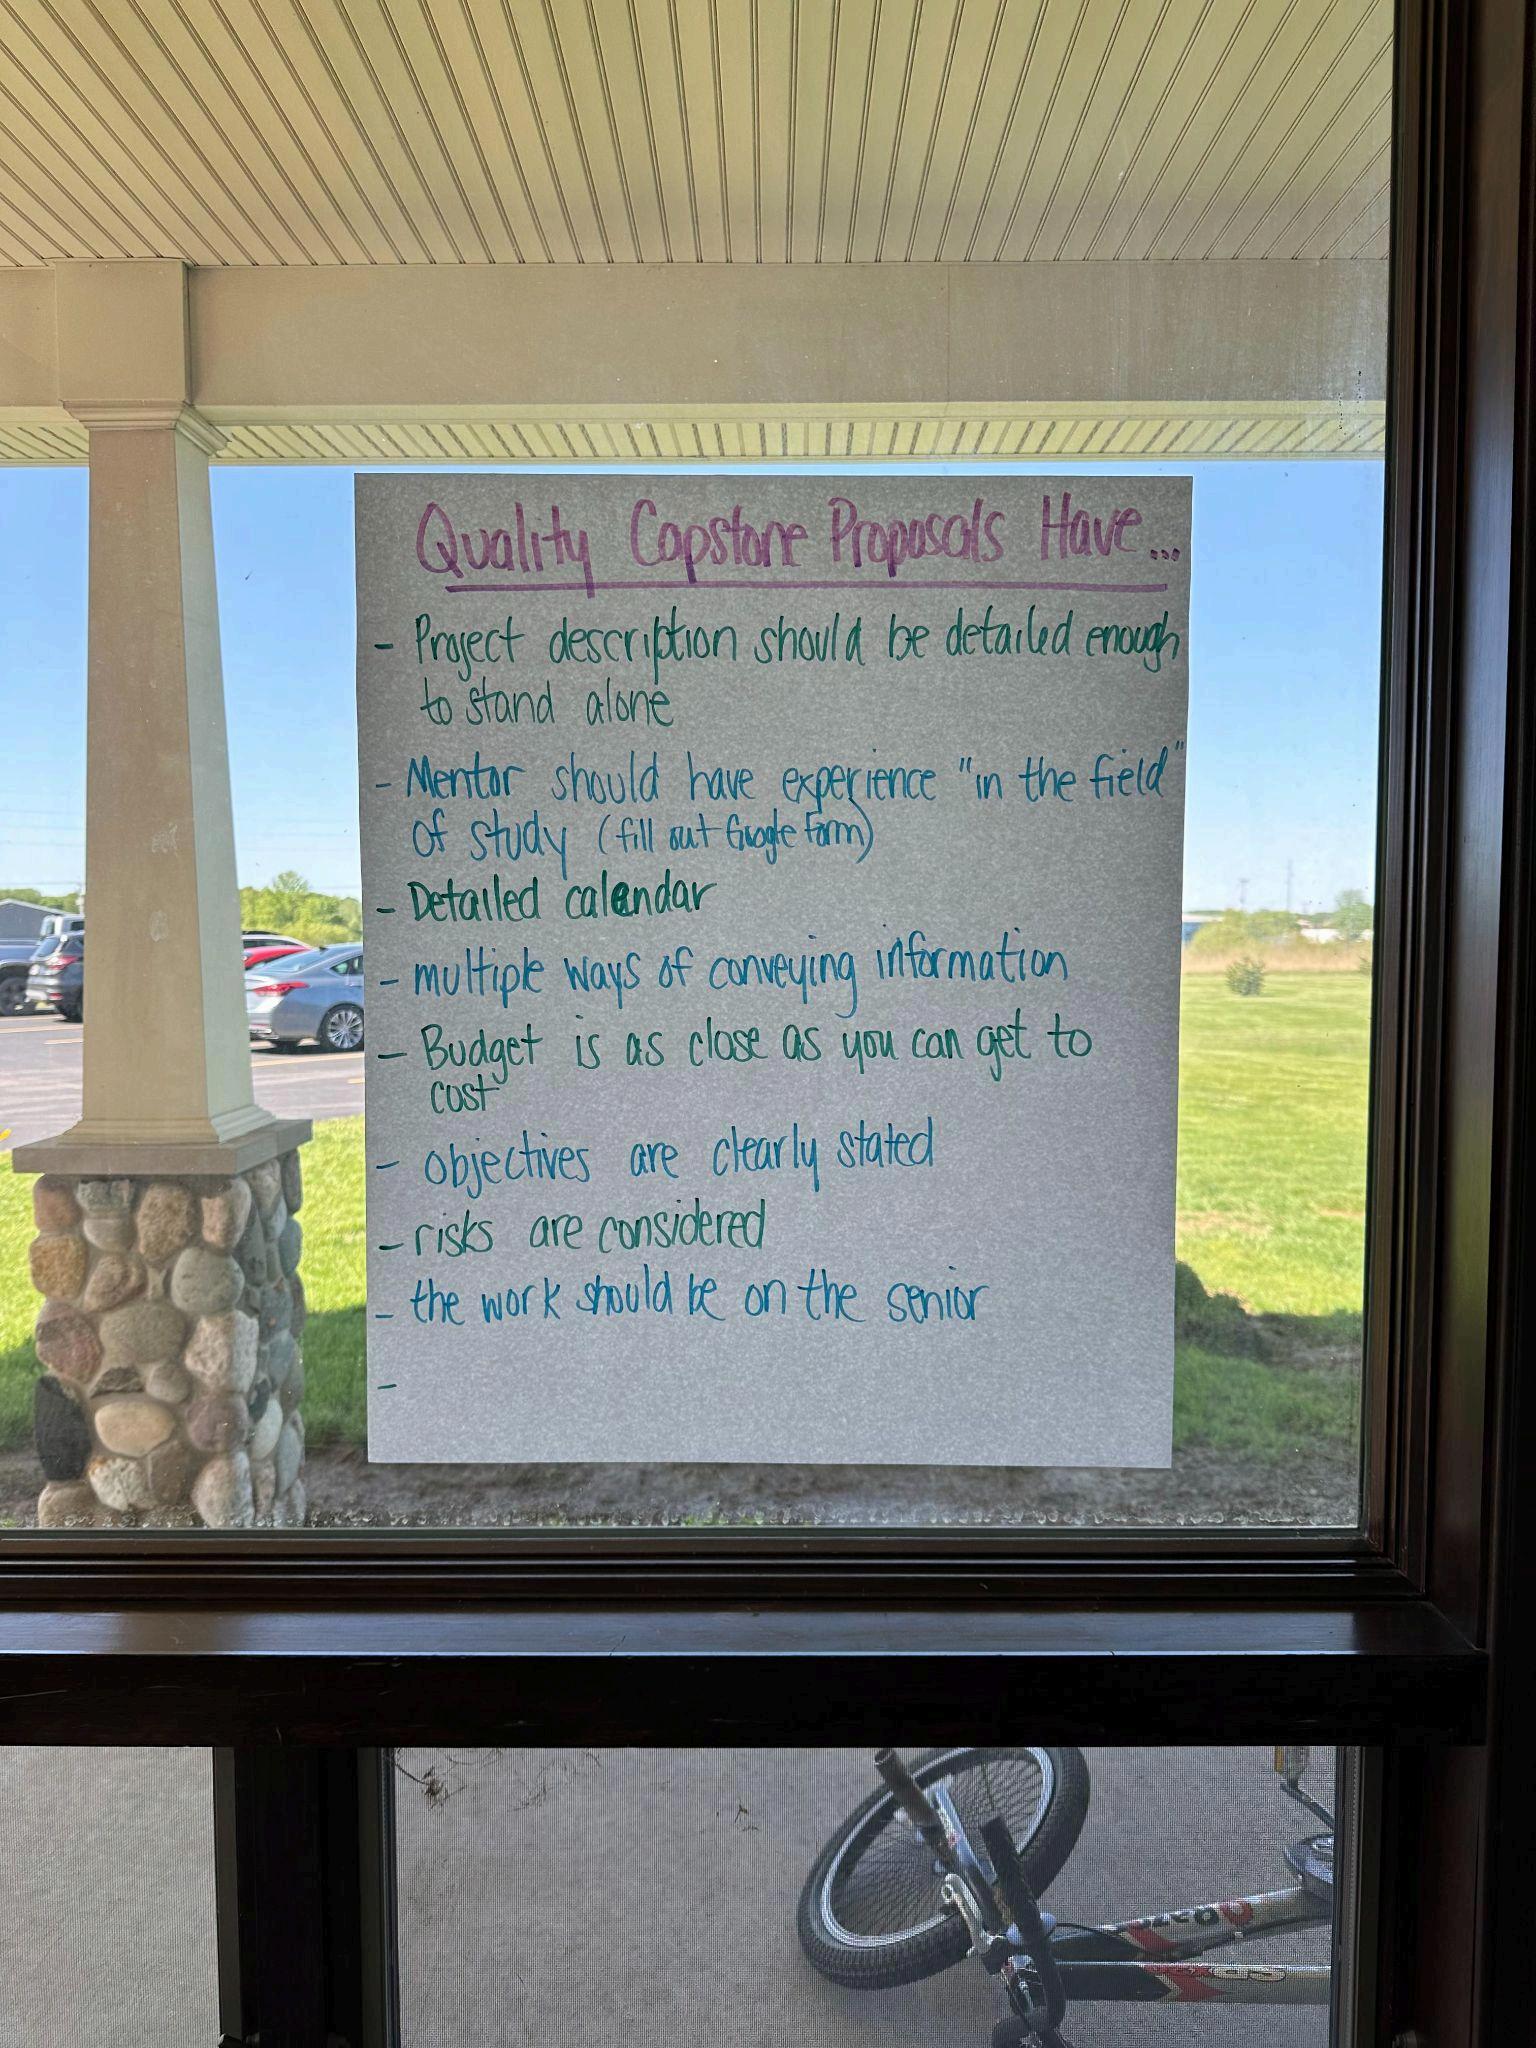 Quality Capstone Proposals Have...
- Project description should be detailed enough
to stand alone
- Mentor should have experience "in the field"
of study (fill out Google Form)
- Detailed calendar
- multiple ways of conveying information
- Budget is as close as you can get to
cost
- objectives are clearly stated
- risks are considered
- the work should be on the senior
-